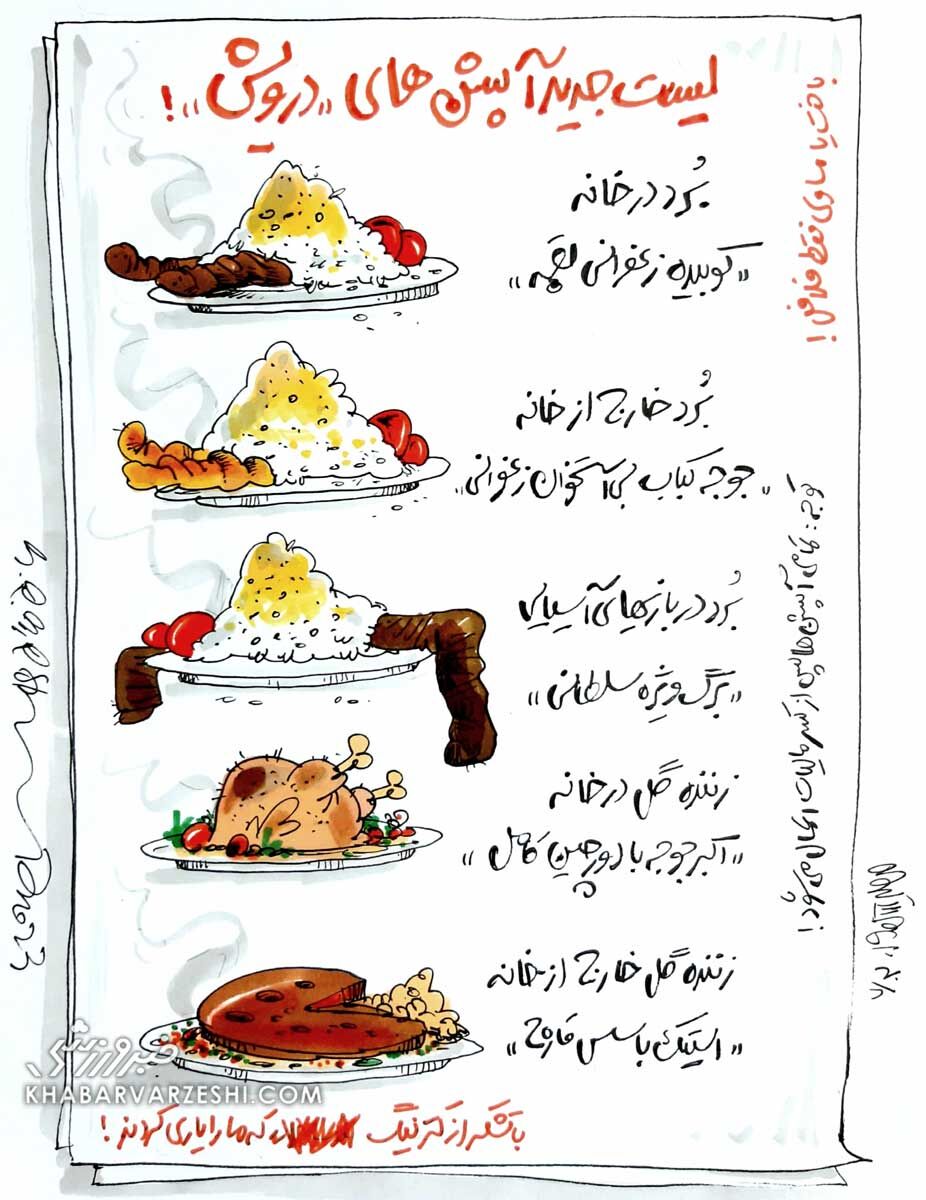 لیست جدید آپشن های «درویش»!
بُرد در خانه
«کوبیده زعفرانی لقمه»
بُرد خارج از خانه
«جوجه کباب بی استخوان زعفرانی»
بُرد در بازیهای آسیایی
«برگ ویژه سلطانی»
زننده گل در خانه
«اکبر جوجه با دورچین کامل»
زننده گل خارج از خانه
«استیک با سس قارچ»
با تشکر از کترینگ که ما را یاری کردند!
باخت یا مساوی فقط فلافل!
توجه: تمامی آپشن ها پس از کسر مالیات ارسال می شود!
خبرورزشی
KHABARVARZESHI.COM